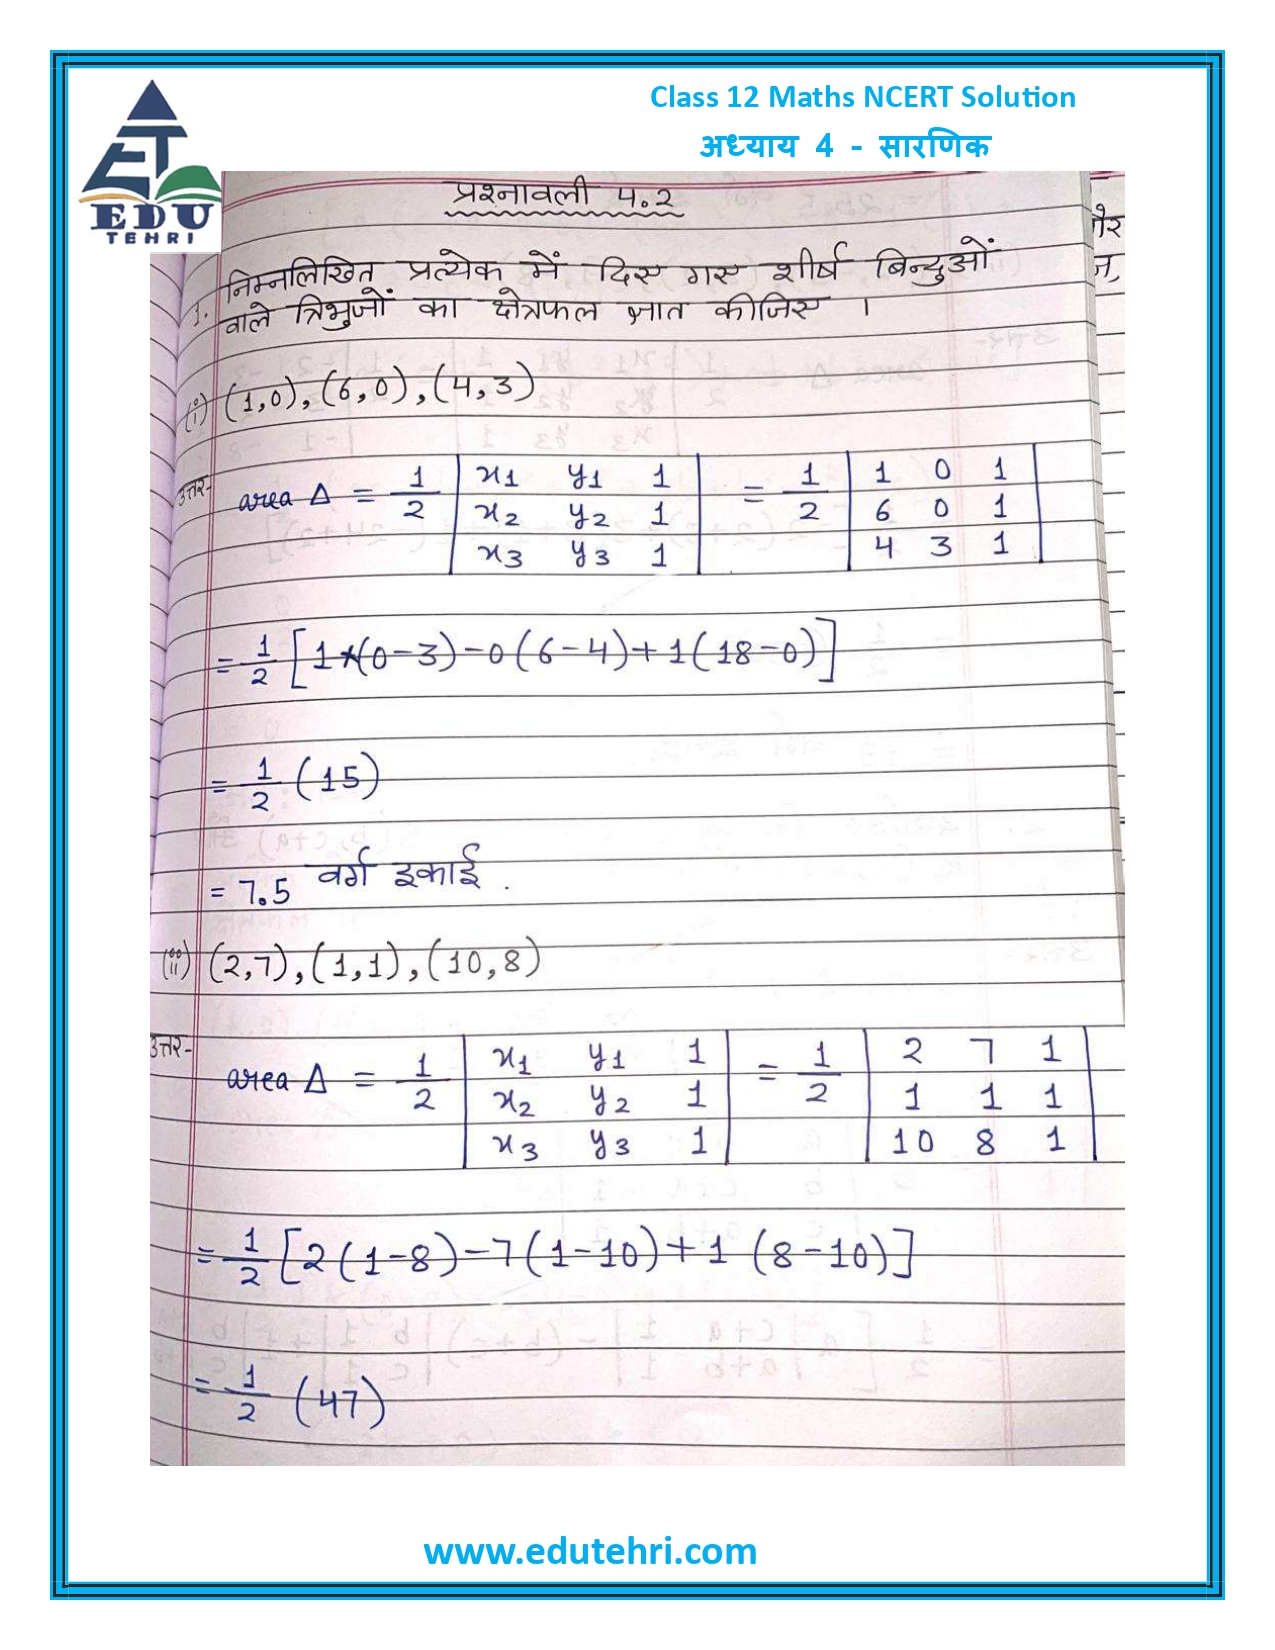 Class 12 Maths NCERT Solution
अध्याय 4 - सारणिक
EDU
TEHRI
प्रश्नावली 4.2
1. निम्नलिखित प्रत्येक में दिए गए शीर्ष बिन्दुओं
वाले त्रिभुजों का क्षेत्रफल ज्ञात कीजिए ।
(i) (1,0), (6,0), (4,3)
उत्तर- area Δ = 1/2 | x1 y1 1 | = 1/2 | 1 0 1 |
| x2 y2 1 | | 6 0 1 |
| x3 y3 1 | | 4 3 1 |
= 1/2 [1×(0-3)-0(6-4)+1(18-0)]
= 1/2 (15)
= 7.5 वर्ग इकाई .
(ii) (2,7), (1,1), (10,8)
उत्तर- area Δ = 1/2 | x1 y1 1 | = 1/2 | 2 7 1 |
| x2 y2 1 | | 1 1 1 |
| x3 y3 1 | | 10 8 1 |
= 1/2 [2(1-8)-7(1-10)+1(8-10)]
= 1/2 (47)
www.edutehri.com